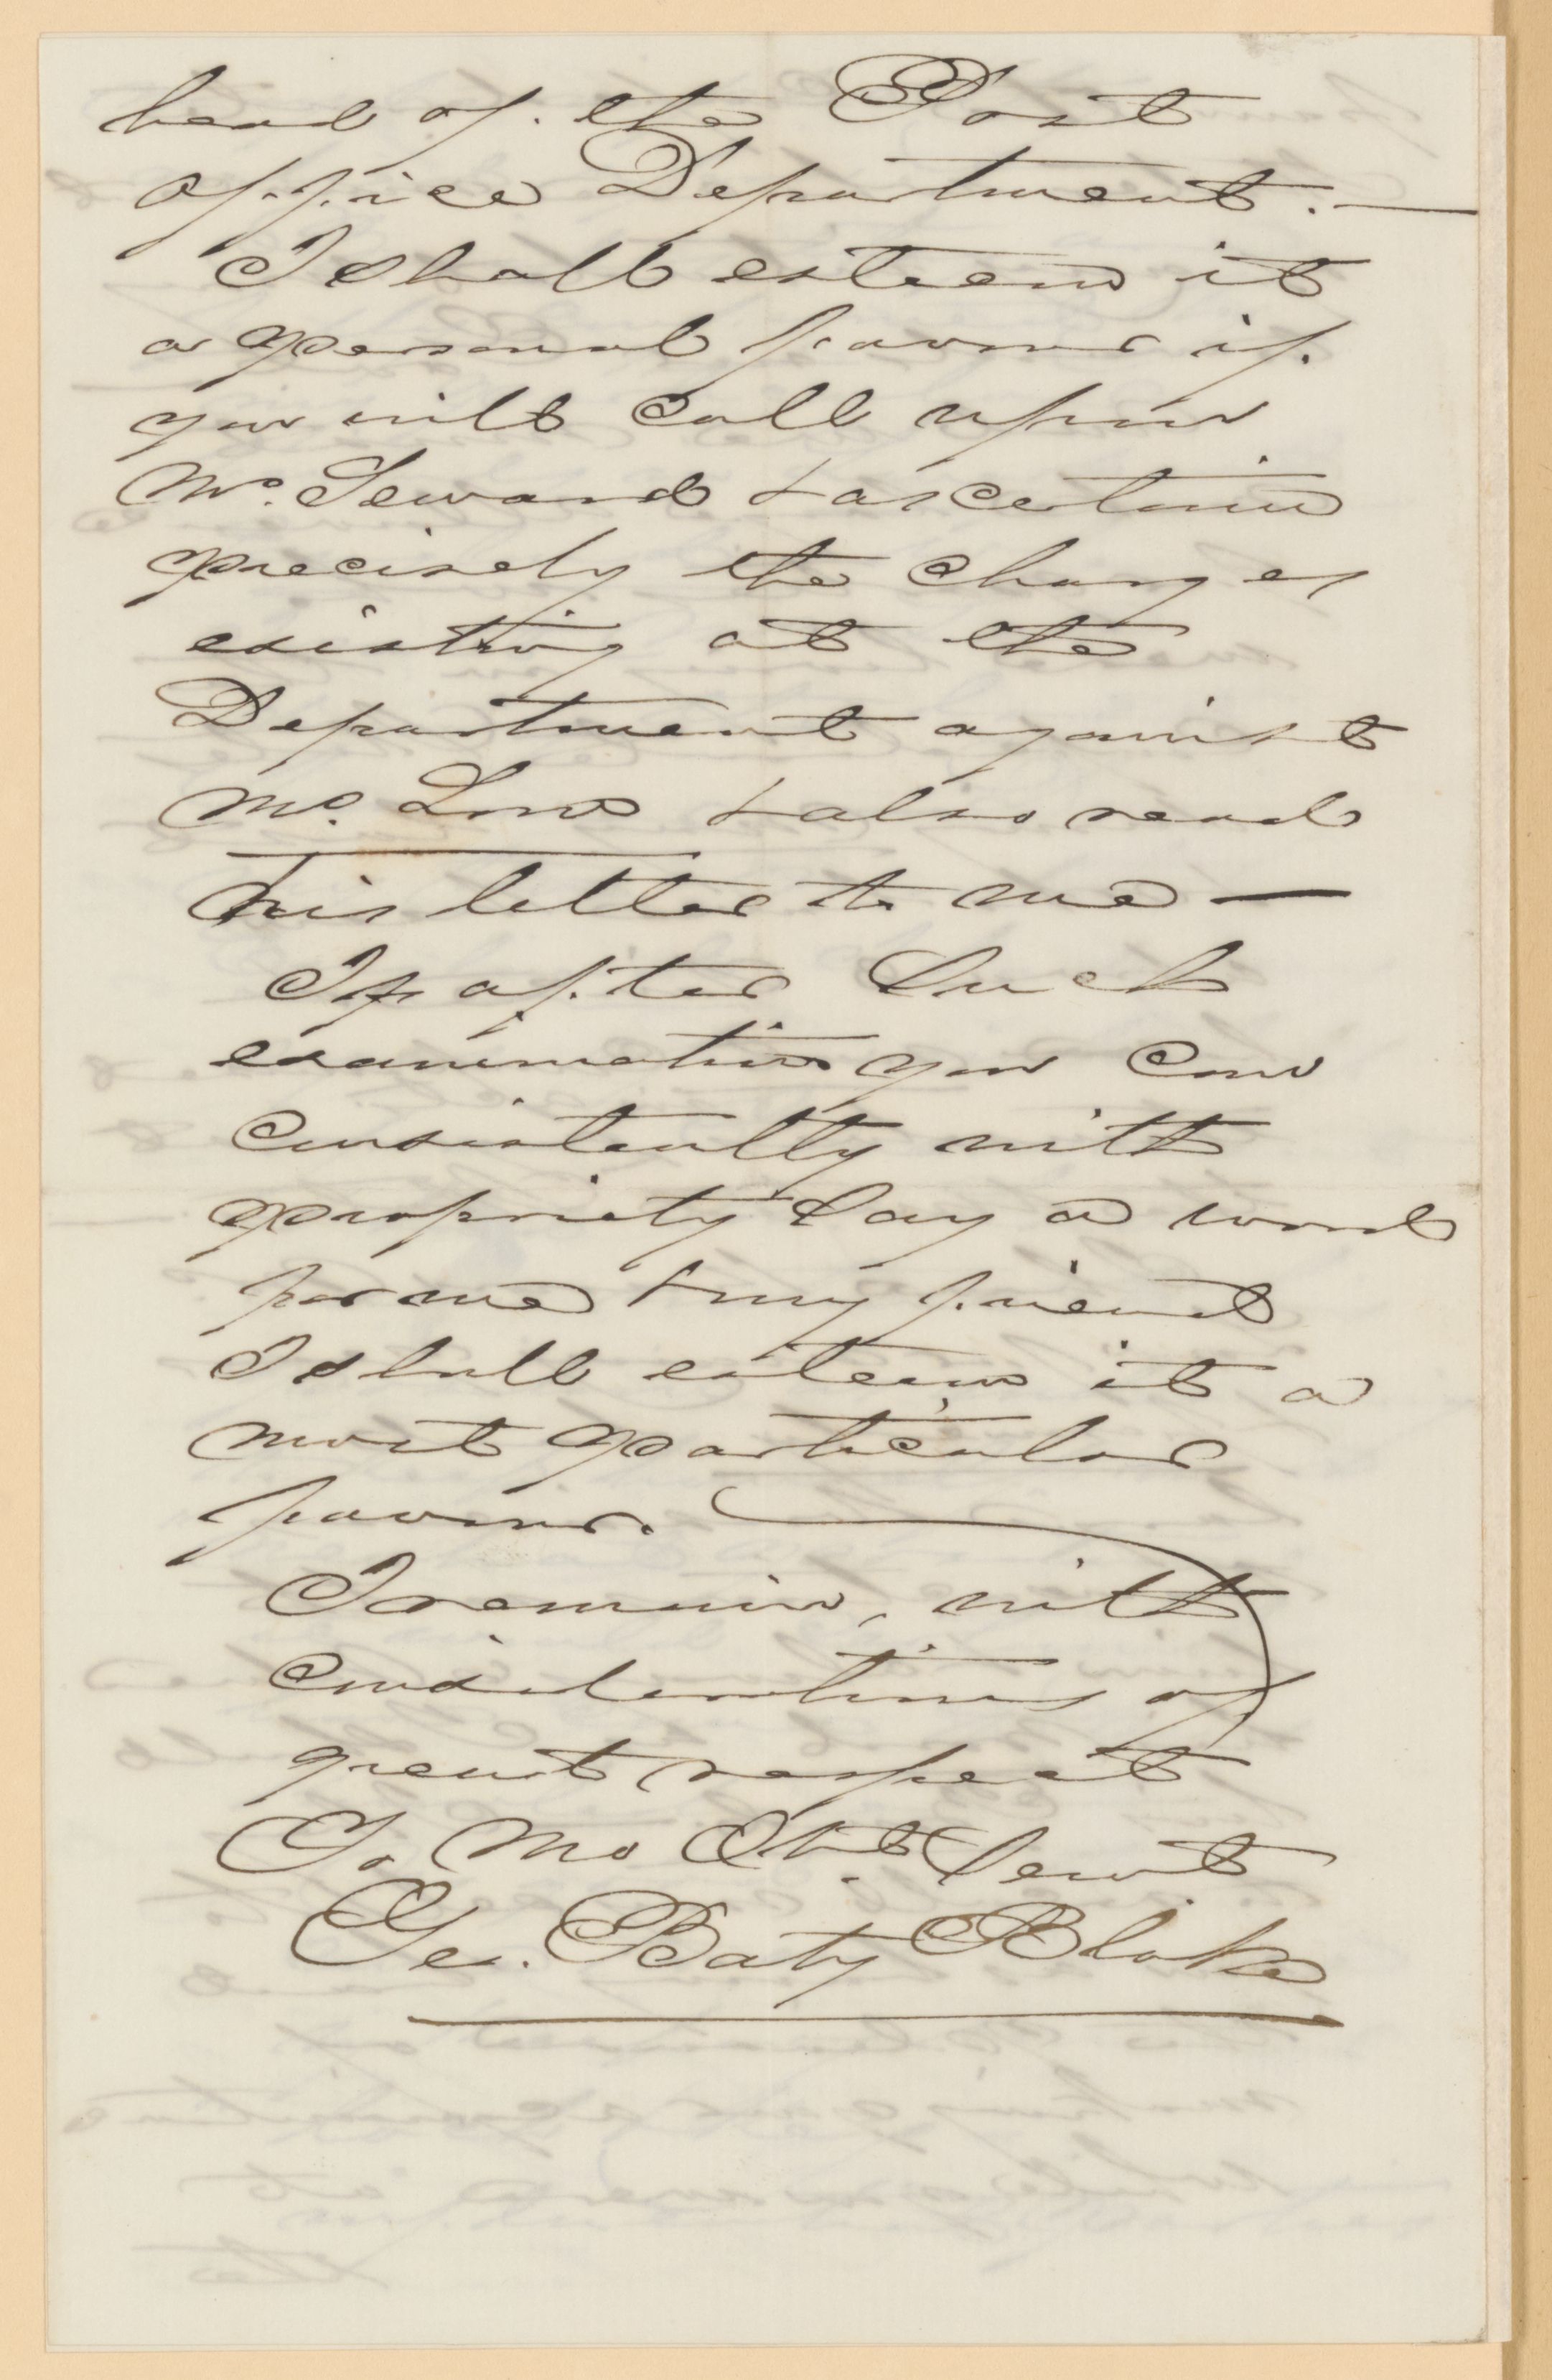 head of the Post
office Department. —
I shall esteem it
a personal favour if
you will call upon
Mr. Seward & ascertain
precisely the charges
existing at the
Department against
Mr. Low & also read
his letter to me —
If after such
examination you can
consistently with
propriety say a word
for me & my friend
I shall esteem it a
most particular
favour.
I remain, with
considerations of
great respect
Yr Mo Obt. Sevt
Geo. Baty Blake